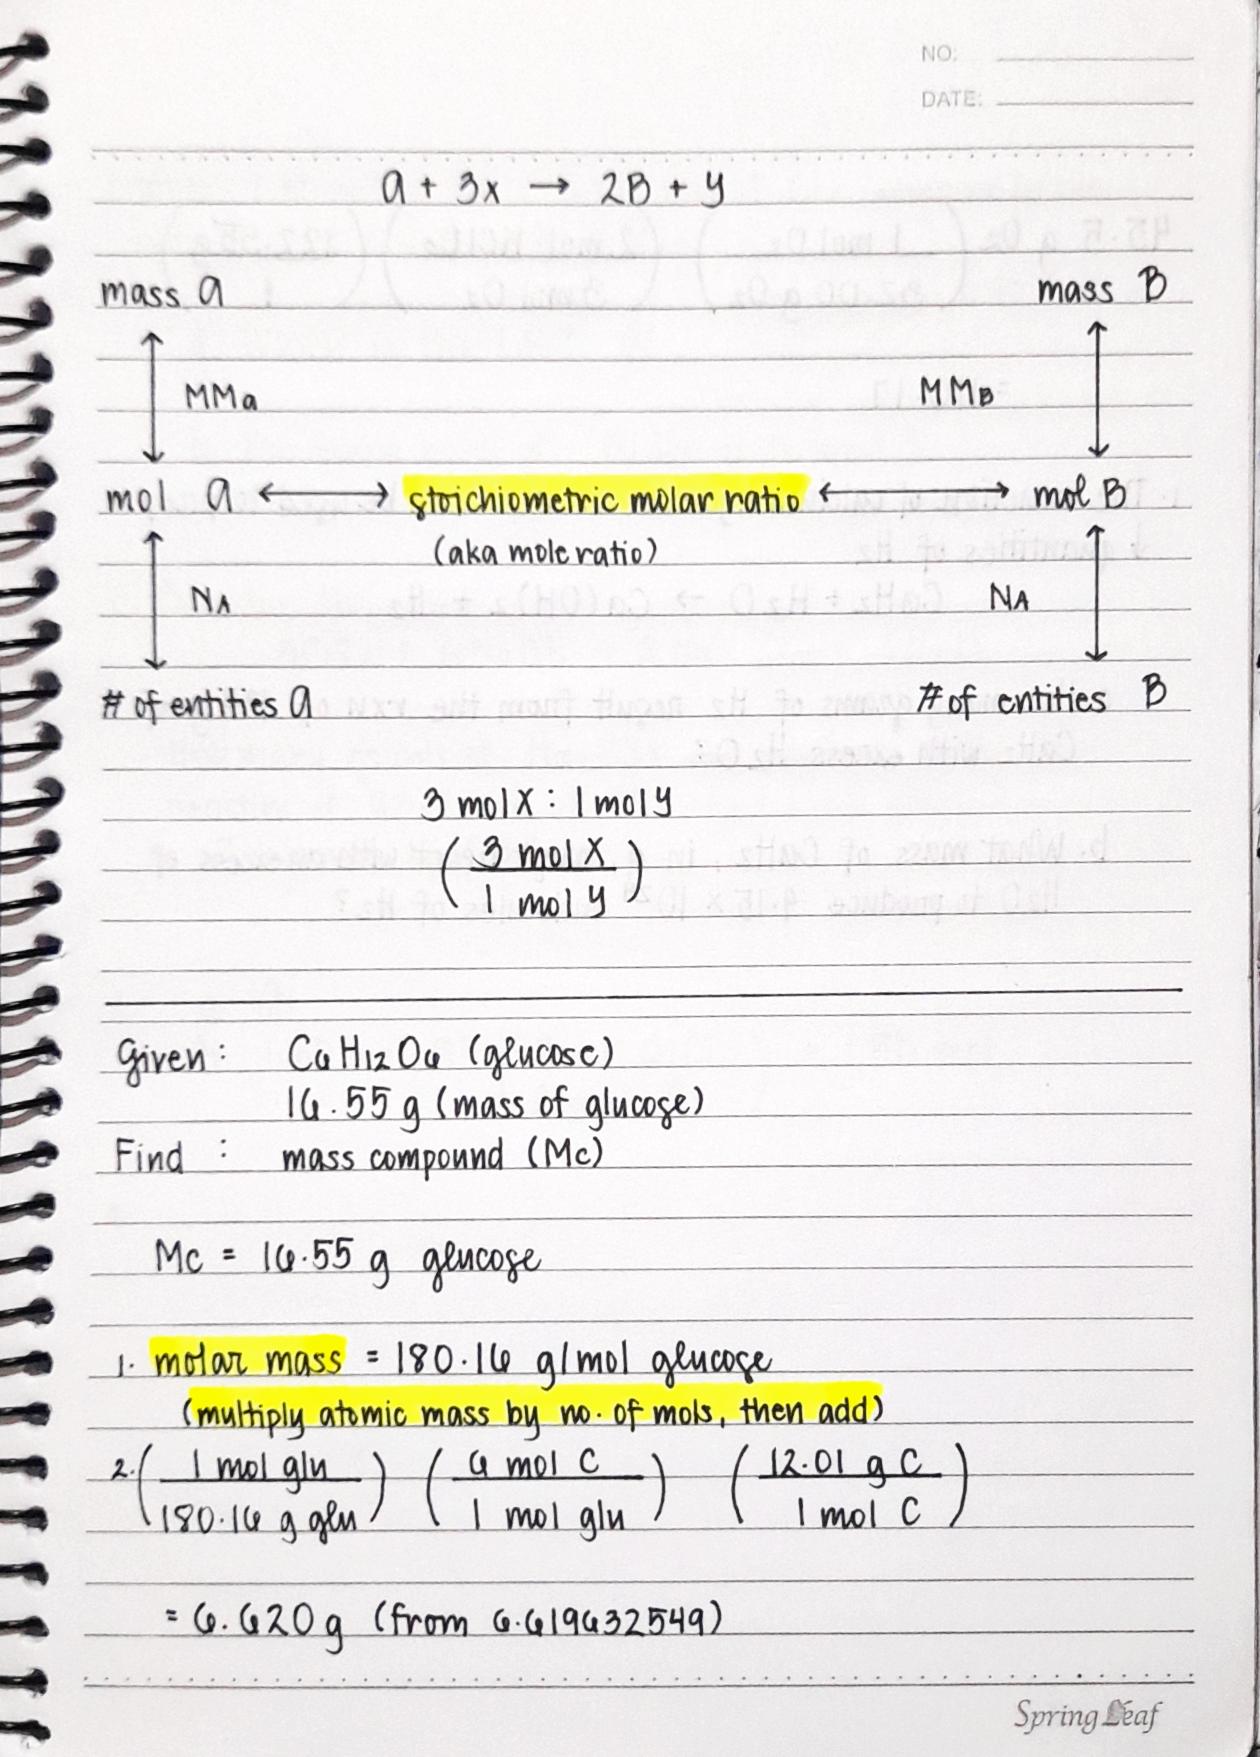 NO:
DATE:
a + 3x → 2B + y
mass a mass B
MMa MMB
mol a ←→ stoichiometric molar ratio ←→ mol B
(aka mole ratio)
NA NA
# of entities a # of entities B
3 mol X : 1 mol y
(3 mol X
1 mol y)
Given: C6H12O6 (glucose)
16.55 g (mass of glucose)
Find : mass compound (Mc)
Mc = 16.55 g glucose
1. molar mass = 180.16 g/mol glucose
(multiply atomic mass by no. of mols, then add)
2. (1 mol glu (6 mol C (12.01 g C
180.16 g glu) 1 mol glu) 1 mol C)
= 6.620 g (from 6.619632549)
Spring Leaf